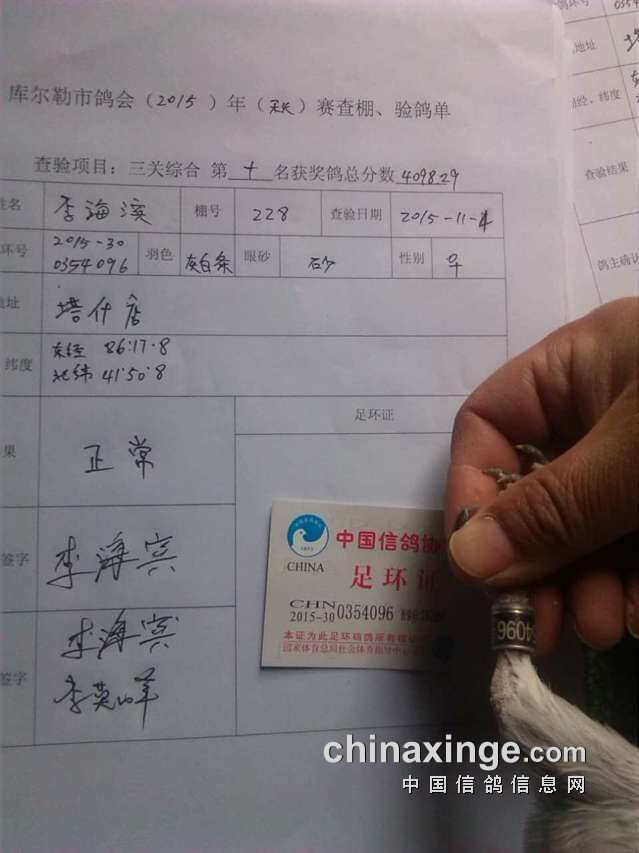 库尔勒市鸽会（2015）年（秋）赛查棚、验鸽单
查验项目：三关综合 第 十 名获奖鸽总分数 4098.29
姓名 李海滨 棚号 228 查验日期 2015-11-4
环号 2015-30 0354096 羽色 灰白条 眼砂 砂 性别 ♀
地址 塔什店
纬度 东经 86:17·8
北纬 41:50·8
果 正常
足环证
签字 李海宾
李海宾
签字
中国信鸽协
CHINA
足环证
CHN
2015-30 0354096
本证为此足环码鸽所有
国家体育总局社会体育指导中心
4096
鸽环号
地址
经、纬度
查验结果
鸽主确认
0354
chinaxinge.com
中国信鸽信息网